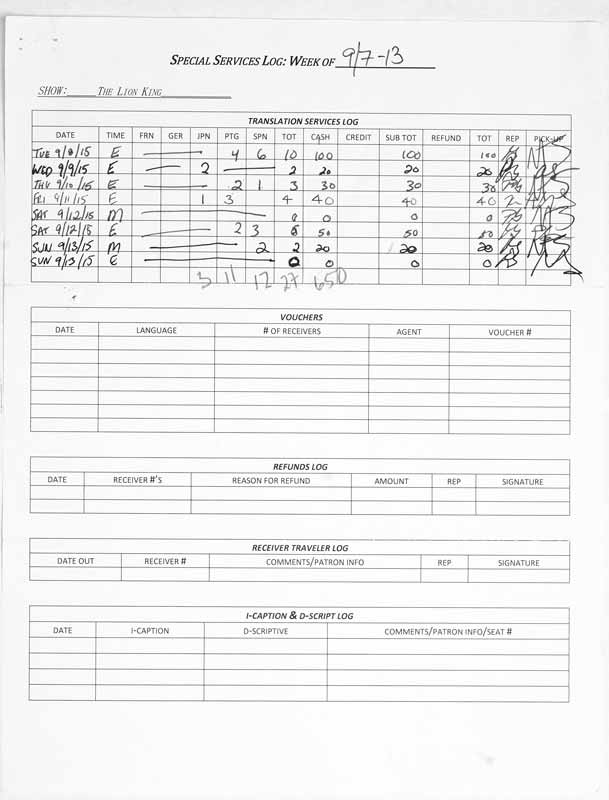 SPECIAL SERVICES LOG: WEEK OF 9/7-13
SHOW: THE LION KING
TRANSLATION SERVICES LOG
DATE TIME FRN GER JPN PTG SPN TOT CASH CREDIT SUB TOT REFUND TOT REP PICK-UP
TUE 9/8/15 E 4 6 10 100 100 100
WED 9/9/15 E 2 2 20 20 20
THU 9/10/15 E 2 1 3 30 30 30
FRI 9/11/15 E 1 3 4 40 40 40
SAT 9/12/15 M 0 0 0 0
SAT 9/12/15 E 2 3 50 50 50
SUN 9/13/15 M 2 2 20 20 20
SUN 9/13/15 E 0 0 0 0
3 11 12 27 650
VOUCHERS
DATE LANGUAGE # OF RECEIVERS AGENT VOUCHER #
REFUNDS LOG
DATE RECEIVER #'S REASON FOR REFUND AMOUNT REP SIGNATURE
RECEIVER TRAVELER LOG
DATE OUT RECEIVER # COMMENTS/PATRON INFO REP SIGNATURE
I-CAPTION & D-SCRIPT LOG
DATE I-CAPTION D-SCRIPTIVE COMMENTS/PATRON INFO/SEAT #